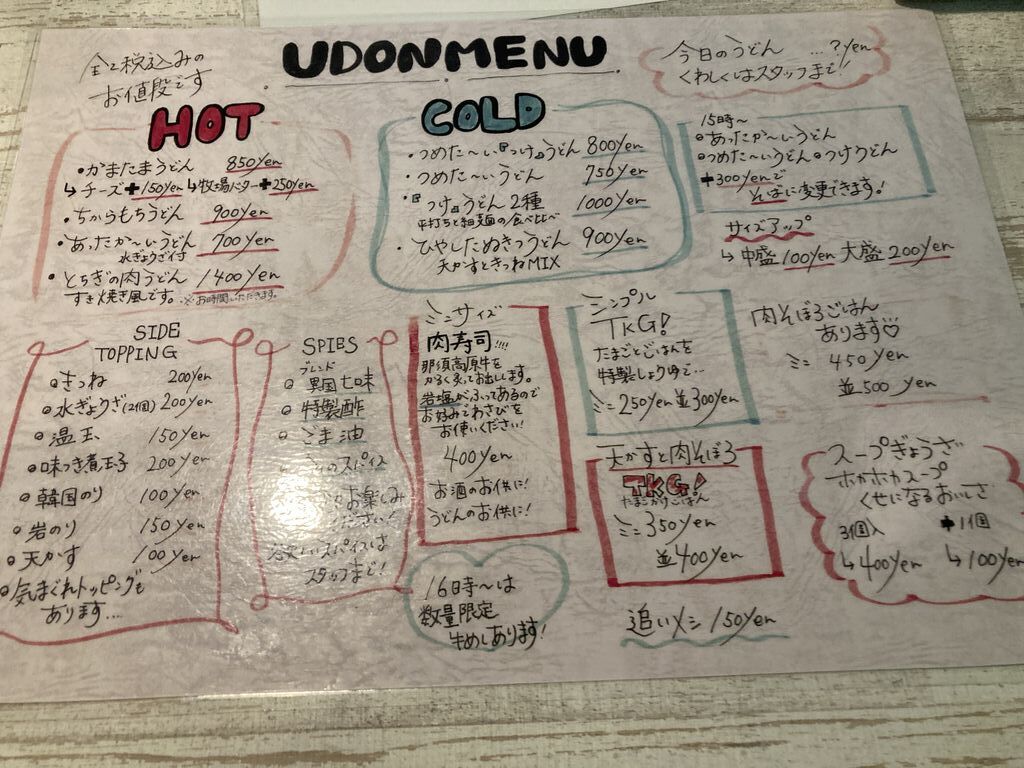 全て税込みの
お値段です
UDON MENU
今日のうどん …?yen
くわしくはスタッフまで!!
HOT
・かまたまうどん 850yen
↳チーズ+150yen ↳牧場バター+250yen
・ちからもちうどん 900yen
・あったか〜いうどん 700yen
水ぎょうざ付
・とちぎの肉うどん 1400yen
すき焼き風です。※お時間いただきます。
COLD
・つめた〜い『つけ』うどん 800yen
・つめた〜いうどん 750yen
・『つけ』うどん2種 1000yen
平打ちと細麺の食べ比べ
・ひやしたぬきつうどん 900yen
天かすときつねMIX
15時〜
・あったか〜いうどん
・つめた〜いうどん・つけうどん
+300yenで
そばに変更できます!
サイズアップ
↳中盛100yen 大盛200yen
SIDE
TOPPING
・きつね 200yen
・水ぎょうざ(2個) 200yen
・温玉 150yen
・味つき煮玉子 200yen
・韓国のり 100yen
・岩のり 150yen
・天かす 100yen
・気まぐれトッピングも
あります…
SPIES
ブレンド
・異国七味
・特製酢
・ごま油
のスパイス
お楽しみ
ください!
スパイスは
スタッフまで!
ミニサイズ
肉寿司!!!!
那須高原牛を
かるく炙ってお出しします。
岩塩がふってあるので
お好みでわさびを
お使いください!
400yen
お酒のお供に!
うどんのお供に!
16時〜は
数量限定
牛めしあります!
シンプル
TKG!
たまごとごはんを
特製しょうゆで…
ミニ250yen 並300yen
天かすと肉そぼろ
TKG!
たまごかけごはん
ミニ350yen
並400yen
追いメシ 150yen
肉そぼろごはん
あります♡
ミニ 450yen
並 500yen
スープぎょうざ
ホカホカスープ
くせになるおいしさ
3個入 +1個
↳400yen ↳100yen